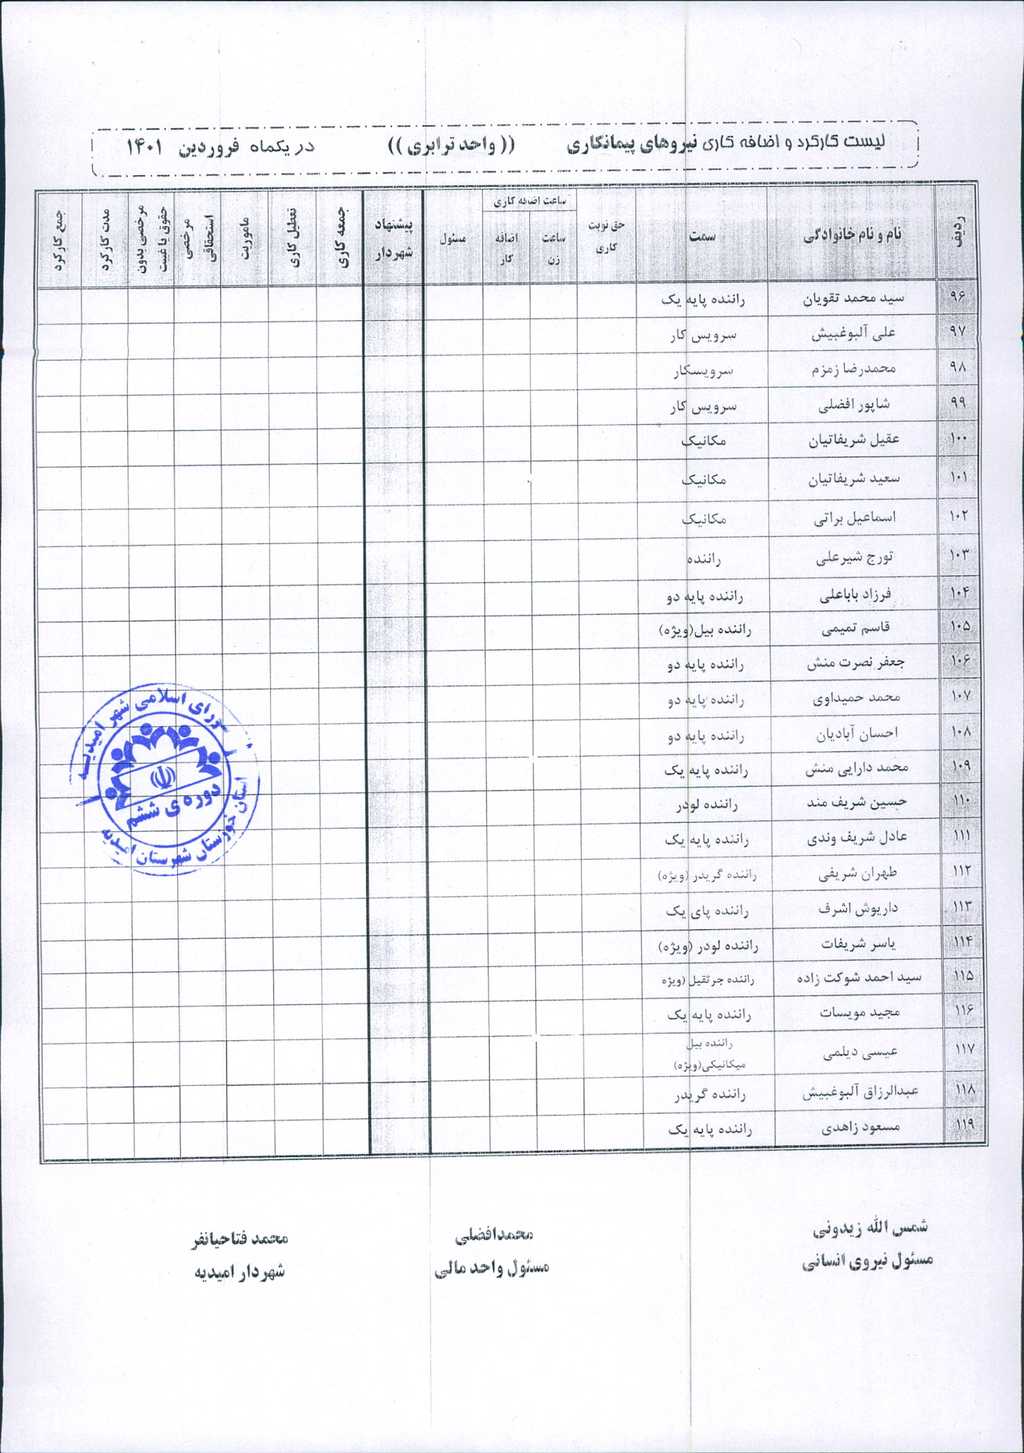 لیست کارکرد و اضافه کاری نیروهای پیمانکاری (( واحد ترابری )) در یکماه فروردین ۱۴۰۱
ردیف نام و نام خانوادگی سمت حق نوبت کاری ساعت اضافه کاری ساعت زن اضافه کار مسئول پیشنهاد شهردار جمعه کاری تعطیل کاری ماموریت مرخصی استحقاقی مرخصی بدون حقوق یا غیبت مدت کارکرد جمع کارکرد
۹۶ سید محمد تقویان راننده پایه یک
۹۷ علی آلبوغبیش سرویس کار
۹۸ محمدرضا زمزم سرویسکار
۹۹ شاپور افضلی سرویس کار
۱۰۰ عقیل شریفاتیان مکانیک
۱۰۱ سعید شریفاتیان مکانیک
۱۰۲ اسماعیل براتی مکانیک
۱۰۳ تورج شیرعلی راننده
۱۰۴ فرزاد باباعلی راننده پایه دو
۱۰۵ قاسم تمیمی راننده بیل(ویژه)
۱۰۶ جعفر نصرت منش راننده پایه دو
۱۰۷ محمد حمیداوی راننده پایه دو
۱۰۸ احسان آبادیان راننده پایه دو
۱۰۹ محمد دارایی منش راننده پایه یک
۱۱۰ حسین شریف مند راننده لودر
۱۱۱ عادل شریف وندی راننده پایه یک
۱۱۲ طهران شریفی راننده گریدر (ویژه)
۱۱۳ داریوش اشرف راننده پای یک
۱۱۴ یاسر شریفات راننده لودر (ویژه)
۱۱۵ سید احمد شوکت زاده راننده جرثقیل (ویژه
۱۱۶ مجید مویسات راننده پایه یک
۱۱۷ عیسی دیلمی راننده بیل میکانیکی(ویژه)
۱۱۸ عبدالرزاق آلبوغبیش راننده گریدر
۱۱۹ مسعود زاهدی راننده پایه یک
شورای اسلامی شهر امیدیه
دوره ی ششم
استان خوزستان شهرستان امیدیه
شمس الله زیدونی محمدافضلی محمد فتاحیانفر
مسئول نیروی انسانی مسئول واحد مالی شهردار امیدیه